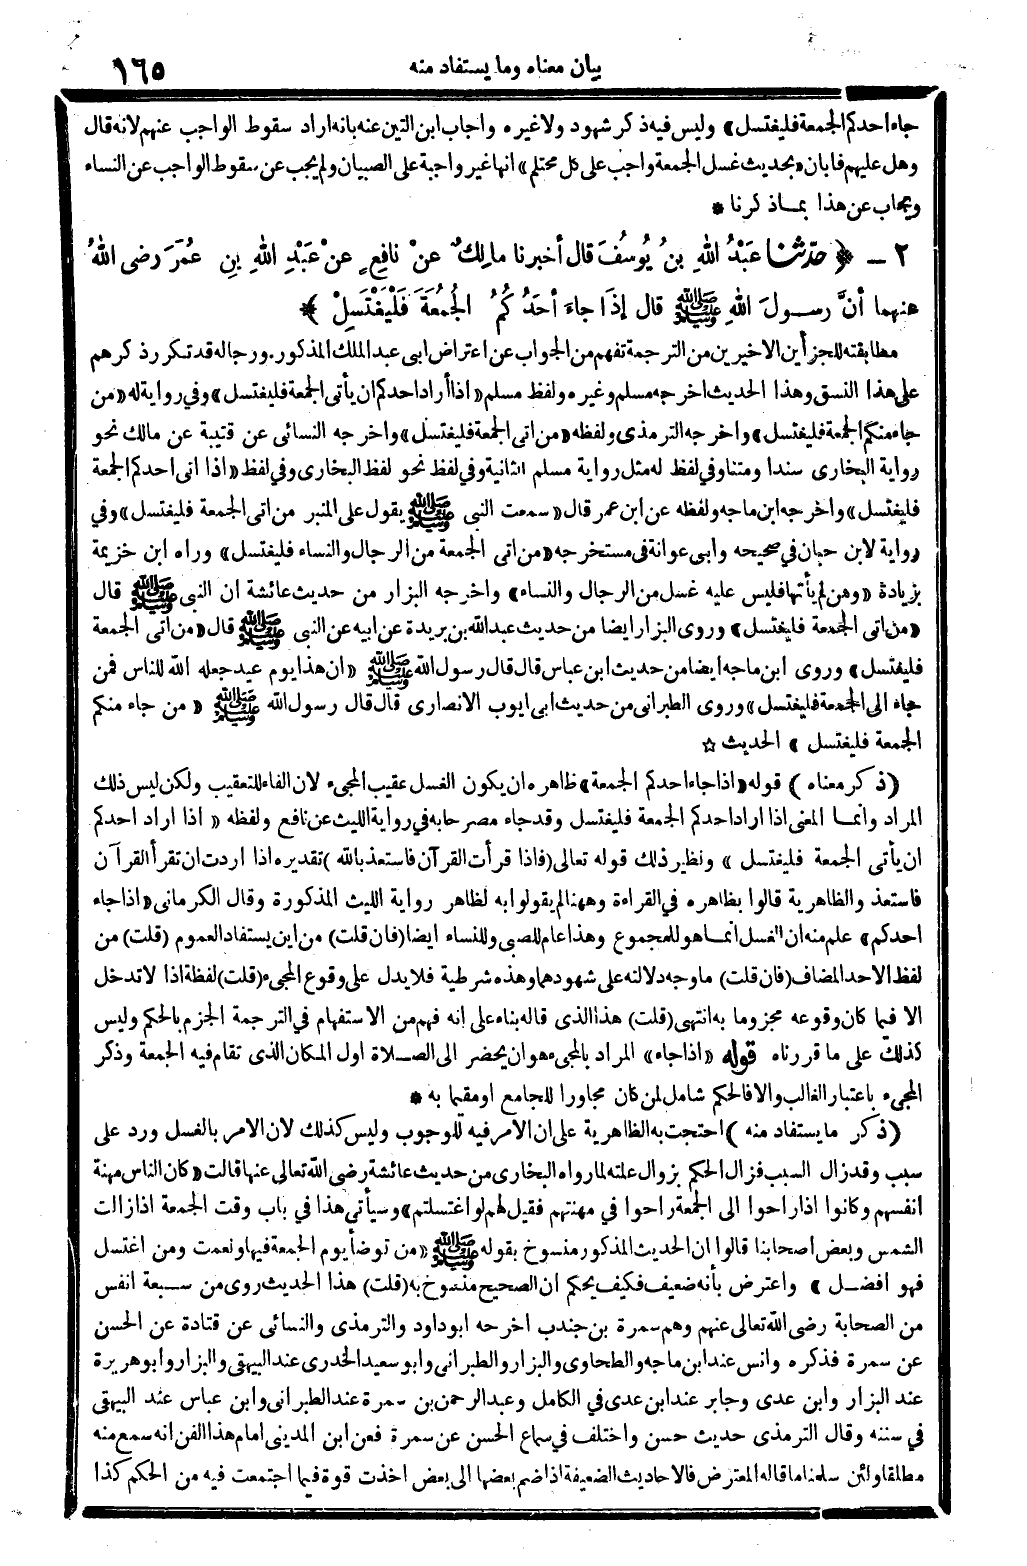 بيان معناه وما يستفاد منه ١٦٥
جاء احدكم الجمعة فليغتسل» وليس فيه ذكر شهود ولا غيره واجاب ابن التين عنه بانه اراد سقوط الواجب عنهم لانه قال
وهل عليهم فابان «بحديث غسل الجمعة واجب على كل محتلم» انها غير واجبة على الصبيان ولم يجب عن سقوط الواجب عن النساء
ويجاب عن هذا بما ذكرنا *
٢ - ﴿ حدّثنا عَبْدُ اللهِ بنُ يُوسُفَ قال أخبرنا مالِكٌ عنْ نافِعٍ عنْ عَبْدِ اللهِ بنِ عُمَرَ رضى اللهُ
عنهما أنَّ رسولَ اللهِ ﷺ قال إذَا جاءَ أحَدُكُمُ الجُمُعَةَ فَلْيَغْتَسِلْ ﴾
مطابقته للجزأين الاخيرين من الترجمة تفهم من الجواب عن اعتراض ابى عبد الملك المذكور. ورجاله قد تكرر ذكرهم
على هذا النسق وهذا الحديث اخرجه مسلم وغيره ولفظ مسلم «اذا أراد احدكم ان يأتى الجمعة فليغتسل» وفي رواية له «من
جاء منكم الجمعة فليغتسل» واخرجه الترمذى ولفظه «من اتى الجمعة فليغتسل» واخرجه النسائى عن قتيبة عن مالك نحو
رواية البخارى سندا ومتنا وفي لفظ له مثل رواية مسلم الثانية وفي لفظ نحو لفظ البخارى وفي لفظ «اذا اتى احدكم الجمعة
فليغتسل» واخرجه ابن ماجه ولفظه عن ابن عمر قال «سمعت النبى ﷺ يقول على المنبر من اتى الجمعة فليغتسل» وفي
رواية لابن حبان في صحيحه وابى عوانة فى مستخرجه «من اتى الجمعة من الرجال والنساء فليغتسل» وراه ابن خزيمة
بزيادة «ومن لم يأتها فليس عليه غسل من الرجال والنساء» واخرجه البزار من حديث عائشة ان النبى ﷺ قال
«من اتى الجمعة فليغتسل» وروى البزار ايضا من حديث عبد الله بن بريدة عن ابيه عن النبى ﷺ قال «من اتى الجمعة
فليغتسل» وروى ابن ماجه ايضا من حديث ابن عباس قال قال رسول الله ﷺ «ان هذا يوم عيد جعله الله للناس فمن
جاء الى الجمعة فليغتسل» وروى الطبرانى من حديث ابى ايوب الانصارى قال قال رسول الله ﷺ «من جاء منكم
الجمعة فليغتسل» الحديث ☆
(ذكر معناه) قوله «اذا جاء احدكم الجمعة» ظاهره ان يكون الغسل عقيب المجىء لان الفاء للتعقيب ولكن ليس ذلك
المراد وانما المعنى اذا اراد احدكم الجمعة فليغتسل وقد جاء مصرحا به في رواية الليث عن نافع ولفظه «اذا اراد احدكم
ان يأتى الجمعة فليغتسل» ونظير ذلك قوله تعالى (فاذا قرأت القرآن فاستعذ بالله) تقديره اذا اردت ان تقرأ القرآن
فاستعذ والظاهرية قالوا بظاهره في القراءة وههنا لم يقولوا به لظاهر رواية الليث المذكورة وقال الكرمانى «اذا جاء
احدكم» علم منه ان الغسل انما هو للمجموع وهذا عام للصبى وللنساء ايضا (فان قلت) من اين يستفاد العموم (قلت) من
لفظ الاحد المضاف (فان قلت) ما وجه دلالته على شهودهما وهذه شرطية فلا يدل على وقوع المجىء (قلت) لفظة اذا لا تدخل
الا فيما كان وقوعه مجزوما به انتهى (قلت) هذا الذى قاله بناء على انه فهم من الاستفهام في الترجمة الجزم بالحكم وليس
كذلك على ما قررناه قوله «اذا جاء» المراد بالمجىء هو ان يحضر الى الصلاة اول المكان الذى تقام فيه الجمعة وذكر
المجىء باعتبار الغالب والا فالحكم شامل لمن كان مجاورا للجامع او مقيما به *
(ذكر ما يستفاد منه) احتجت به الظاهرية على ان الامر فيه للوجوب وليس كذلك لان الامر بالغسل ورد على
سبب وقد زال السبب فزال الحكم بزوال علته لما رواه البخارى من حديث عائشة رضى الله تعالى عنها قالت «كان الناس مهنة
انفسهم وكانوا اذا راحوا الى الجمعة راحوا في مهنتهم فقيل لهم لو اغتسلتم» وسيأتى هذا في باب وقت الجمعة اذا زالت
الشمس وبعض اصحابنا قالوا ان الحديث المذكور منسوخ بقوله ﷺ «من توضأ يوم الجمعة فيها ونعمت ومن اغتسل
فهو افضل» واعترض بأنه ضعيف فكيف يحكم ان الصحيح منسوخ به (قلت) هذا الحديث روى من سبعة انفس
من الصحابة رضى الله تعالى عنهم وهم سمرة بن جندب اخرجه ابو داود والترمذى والنسائى عن قتادة عن الحسن
عن سمرة فذكره وانس عند ابن ماجه والطحاوى والبزار والطبرانى وابو سعيد الخدرى عند البيهقى والبزار وابو هريرة
عند البزار وابن عدى وجابر عند ابن عدى في الكامل وعبد الرحمن بن سمرة عند الطبرانى وابن عباس عند البيهقى
في سننه وقال الترمذى حديث حسن واختلف في سماع الحسن عن سمرة فعن ابن المدينى امام هذا الفن انه سمع منه
مطلقا ولئن سلمنا ما قاله المعترض فالاحاديث الضعيفة اذا ضم بعضها الى بعض اخذت قوة فيما اجتمعت فيه من الحكم كذا